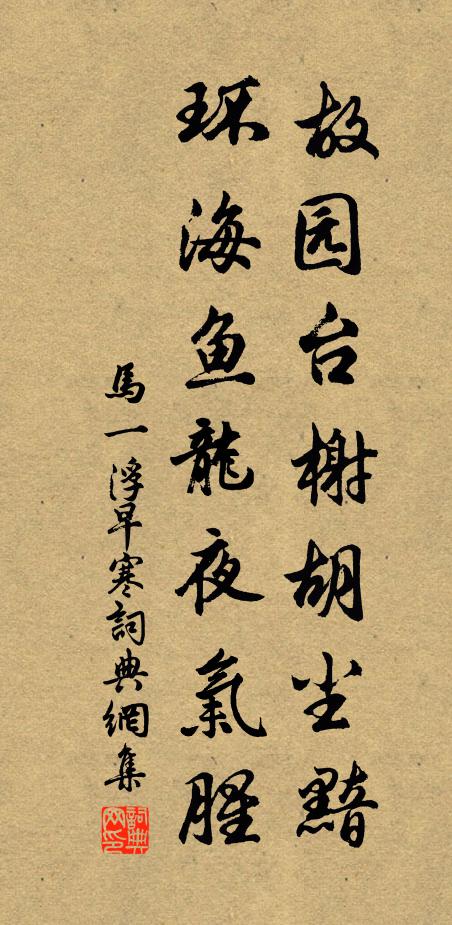 故园台榭胡尘黯
环海鱼龍夜氣腥
馬一浮早寒詞典網集
詞典網印